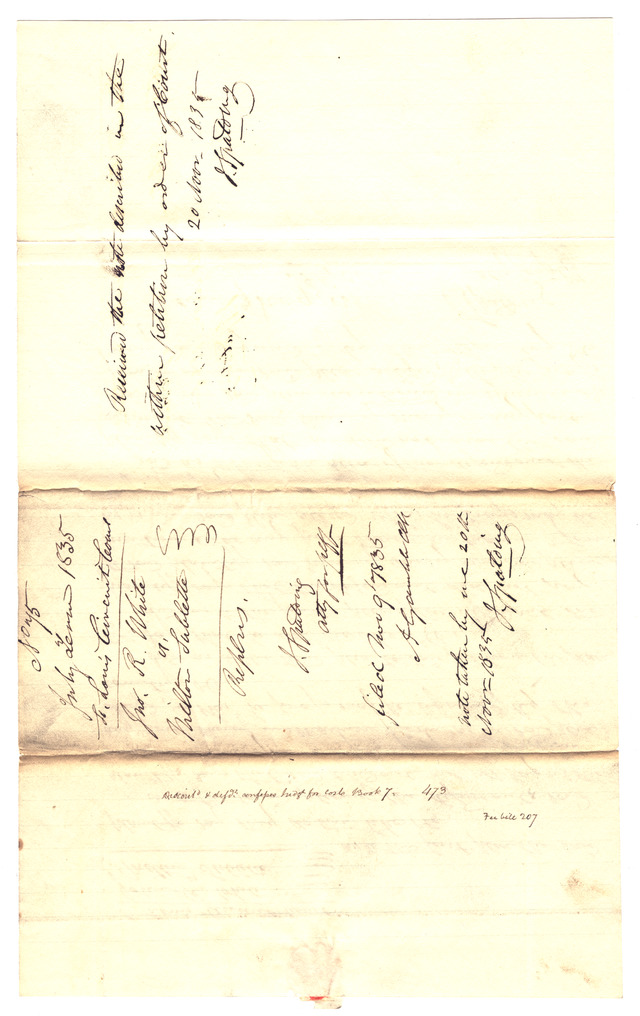 Received the note described in the
within petition by order of Court.
20 Novr 1835
J. Spalding
No 45
July Term 1835
St. Louis Circuit Court
Jno. R. White
vs.
Milton Sublette
J Spalding
atty for plff
filed Nov 9th 1835
A Gamble Clk
note taken by me 20th
Novr 1835
J. Spalding
& defdt confesses Judgt for costs Book 7. 473
Fee bill 207